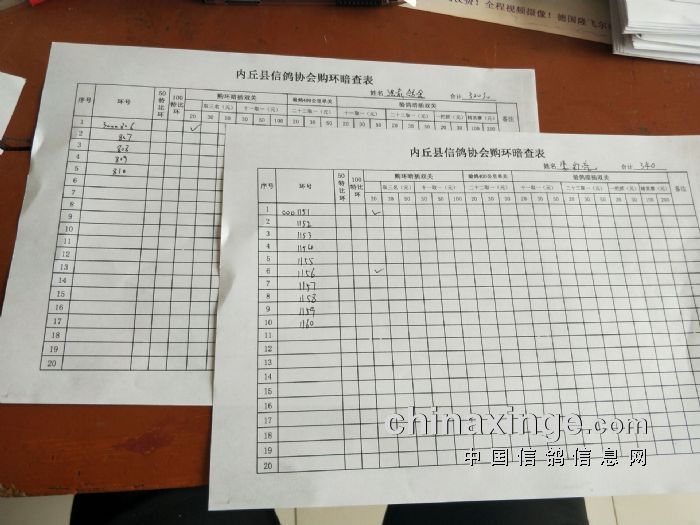 次赛！全程视频摄像！德国隆飞尔
内丘县信鸽协会购环暗查表
姓名 合计
序号 环号 50特比环 100特比环 购环暗插双关 验鸽400公里单关 验鸽暗插双关 备注
取三名（元） 十一取一（元） 二十二取一（元） 十一取一（元） 二十二取一（元） 一把抓（元） 精英赛（元）
20 30 50 20 50 100 20 30 50 20 30 50 20 30 50 100 100 200
1 ✓
2 807
3 808
4 809
5 810
6
7
8
9
10
11
12
13
14
15
16
17
18
19
20
内丘县信鸽协会购环暗查表
姓名 合计 340
序号 环号 50特比环 100特比环 购环暗插双关 验鸽400公里单关 验鸽暗插双关 备注
取三名（元） 十一取一（元） 二十二取一（元） 十一取一（元） 二十三取一（元） 一把抓（元） 精英赛（元）
1 0001151 ✓
2 1152
3 1153
4 1154
5 1155
6 1156 ✓
7 1157
8 1158
9 1159
10 1160
11
12
13
14
15
16
17
18
19
20
chinaxinge.com
中国信鸽信息网